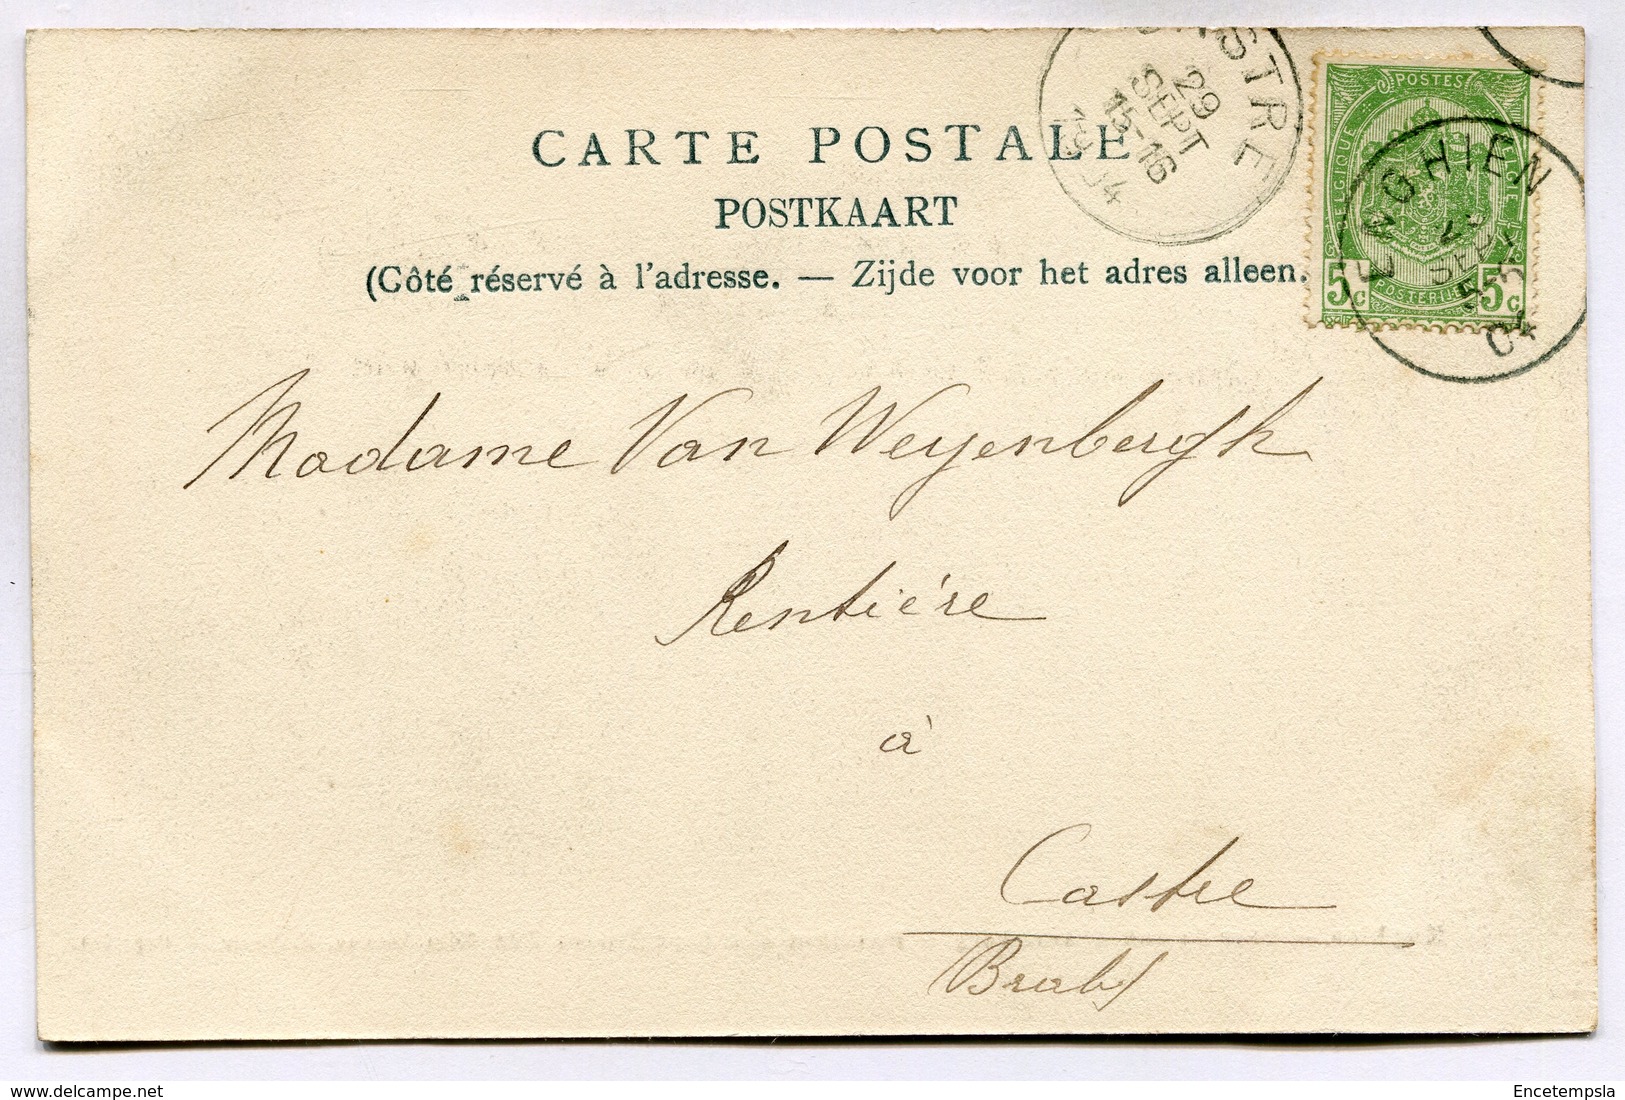 CARTE POSTALE
POSTKAART
(Côté réservé à l'adresse. — Zijde voor het adres alleen.
29
SEPT
15-16
POSTES
BELGIQUE
5c
5c
ENGHIEN
SEPT
04
Madame Van Weyenbergh
Rentiére
à
Castre
(Brabt)
delcampe.net
Encetempsla